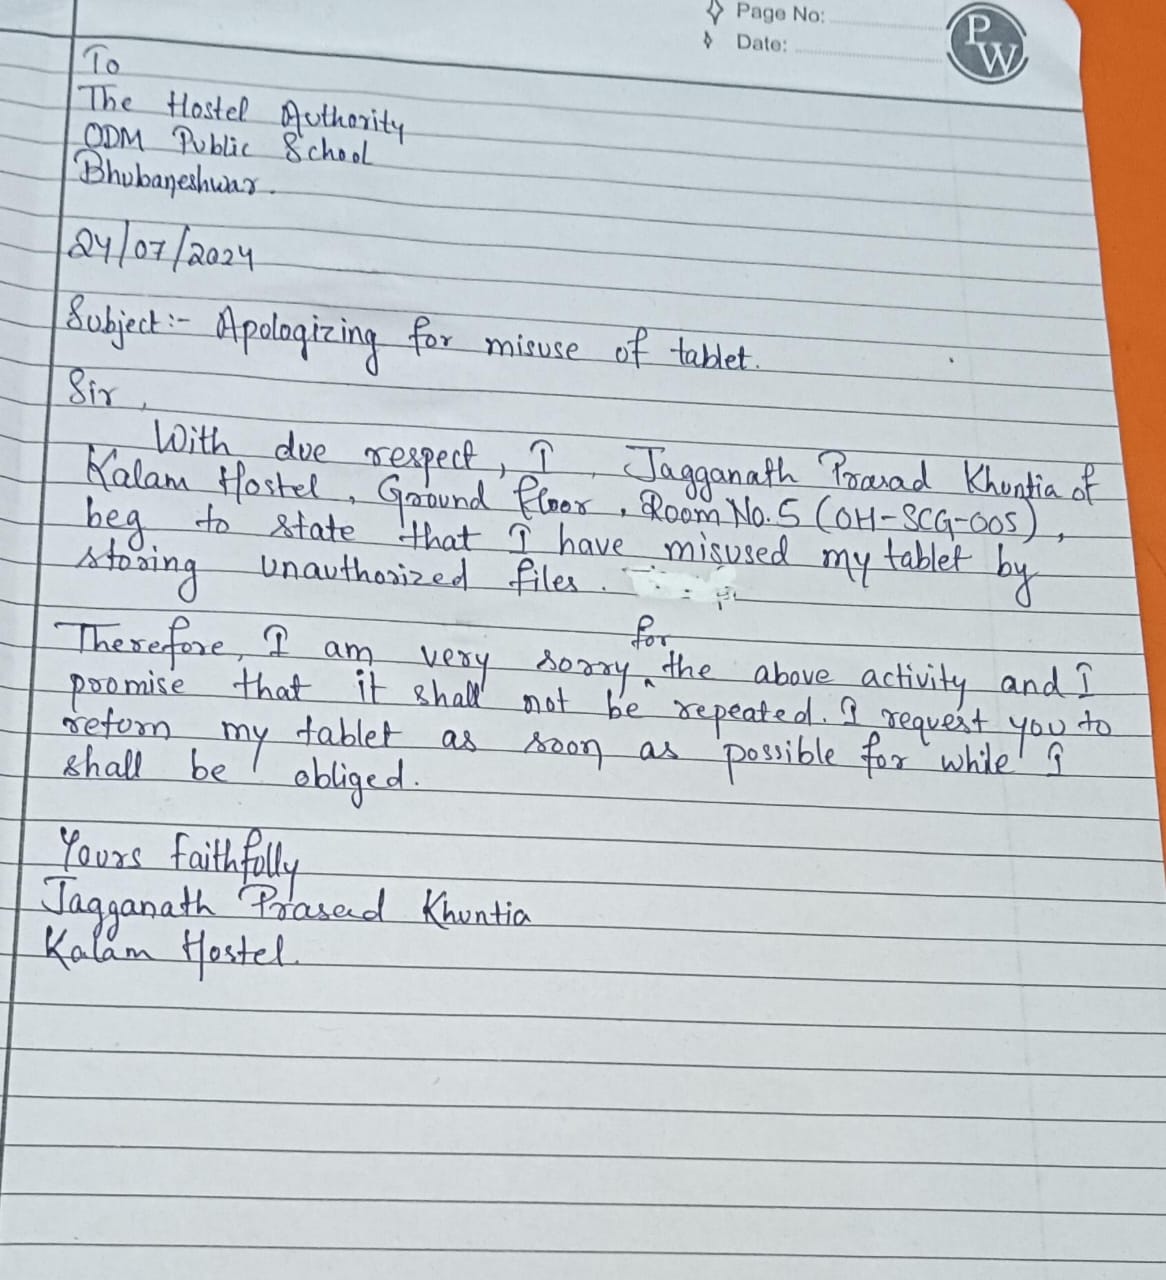 Page No:
Date:
PW
To
The Hostel Authority
ODM Public School
Bhubaneshwar.
24/07/2024
Subject:- Apologizing for misuse of tablet.
Sir,
With due respect, I, Jagganath Prasad Khuntia of
Kalam Hostel, Ground floor, Room No. 5 (OH-SCG-005),
beg to state that I have misused my tablet by
storing unauthorized files.
Therefore, I am very sorry for the above activity and I
promise that it shall not be repeated. I request you to
return my tablet as soon as possible for while I
shall be obliged.
Yours faithfully
Jagganath Prasad Khuntia
Kalam Hostel.